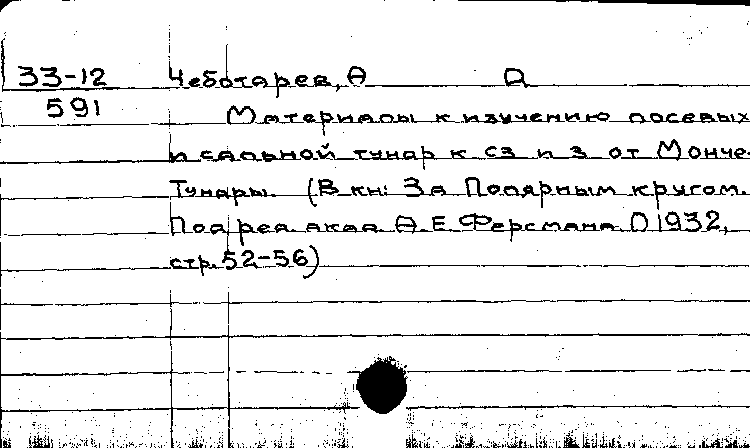 33-12 Чеботарев, А Д
591 Материалы к изучению лосевых
и сальной тундр к СЗ и З от Монче-
Тундры. (В кн: За Полярным кругом.
Под ред. акад. А.Е. Ферсмана Л 1932,
стр. 52-56)